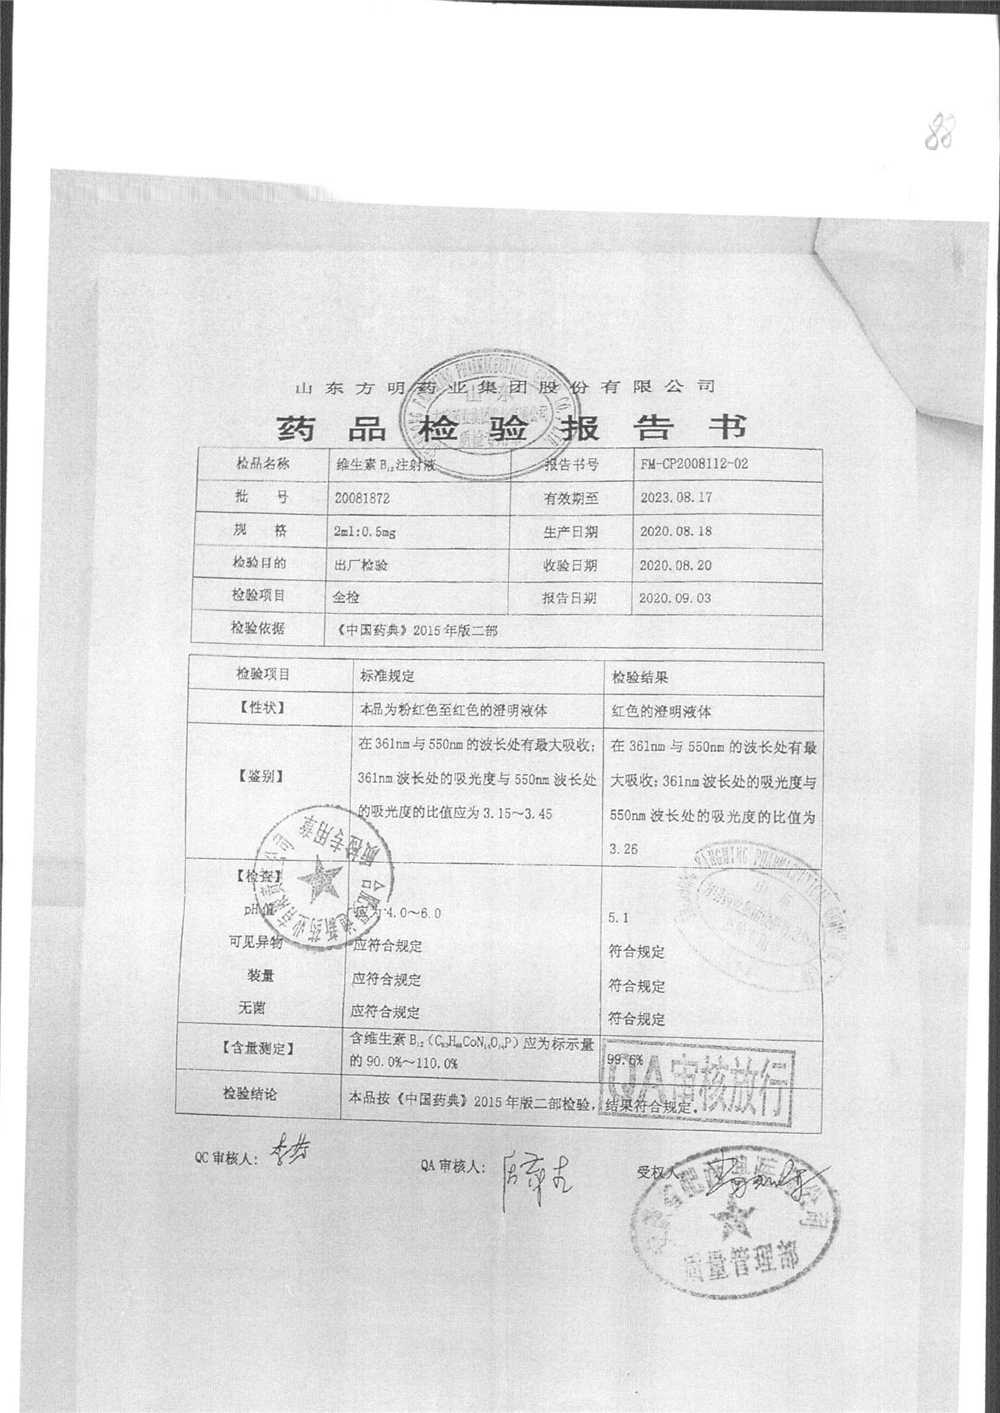 88
山东方明药业集团股份有限公司
药品检验报告书
检品名称 维生素B₁₂注射液 报告书号 FM-CP2008112-02
批 号 20081872 有效期至 2023.08.17
规 格 2ml:0.5mg 生产日期 2020.08.18
检验目的 出厂检验 收验日期 2020.08.20
检验项目 全检 报告日期 2020.09.03
检验依据 《中国药典》2015年版二部
检验项目 标准规定 检验结果
【性状】 本品为粉红色至红色的澄明液体 红色的澄明液体
【鉴别】
在361nm与550nm的波长处有最大吸收;
361nm波长处的吸光度与550nm波长处
的吸光度的比值应为3.15~3.45
在361nm与550nm的波长处有最
大吸收;361nm波长处的吸光度与
550nm波长处的吸光度的比值为
3.26
【检查】
pH值 应为4.0~6.0 5.1
可见异物 应符合规定 符合规定
装量 应符合规定 符合规定
无菌 应符合规定 符合规定
【含量测定】
含维生素B₁₂(C₆₃H₈₈CoN₁₄O₁₄P)应为标示量
的90.0%~110.0%
99.6%
QA审核放行
检验结论 本品按《中国药典》2015年版二部检验,结果符合规定。
QC审核人: QA审核人: 受权人
质检专用章
质量管理部